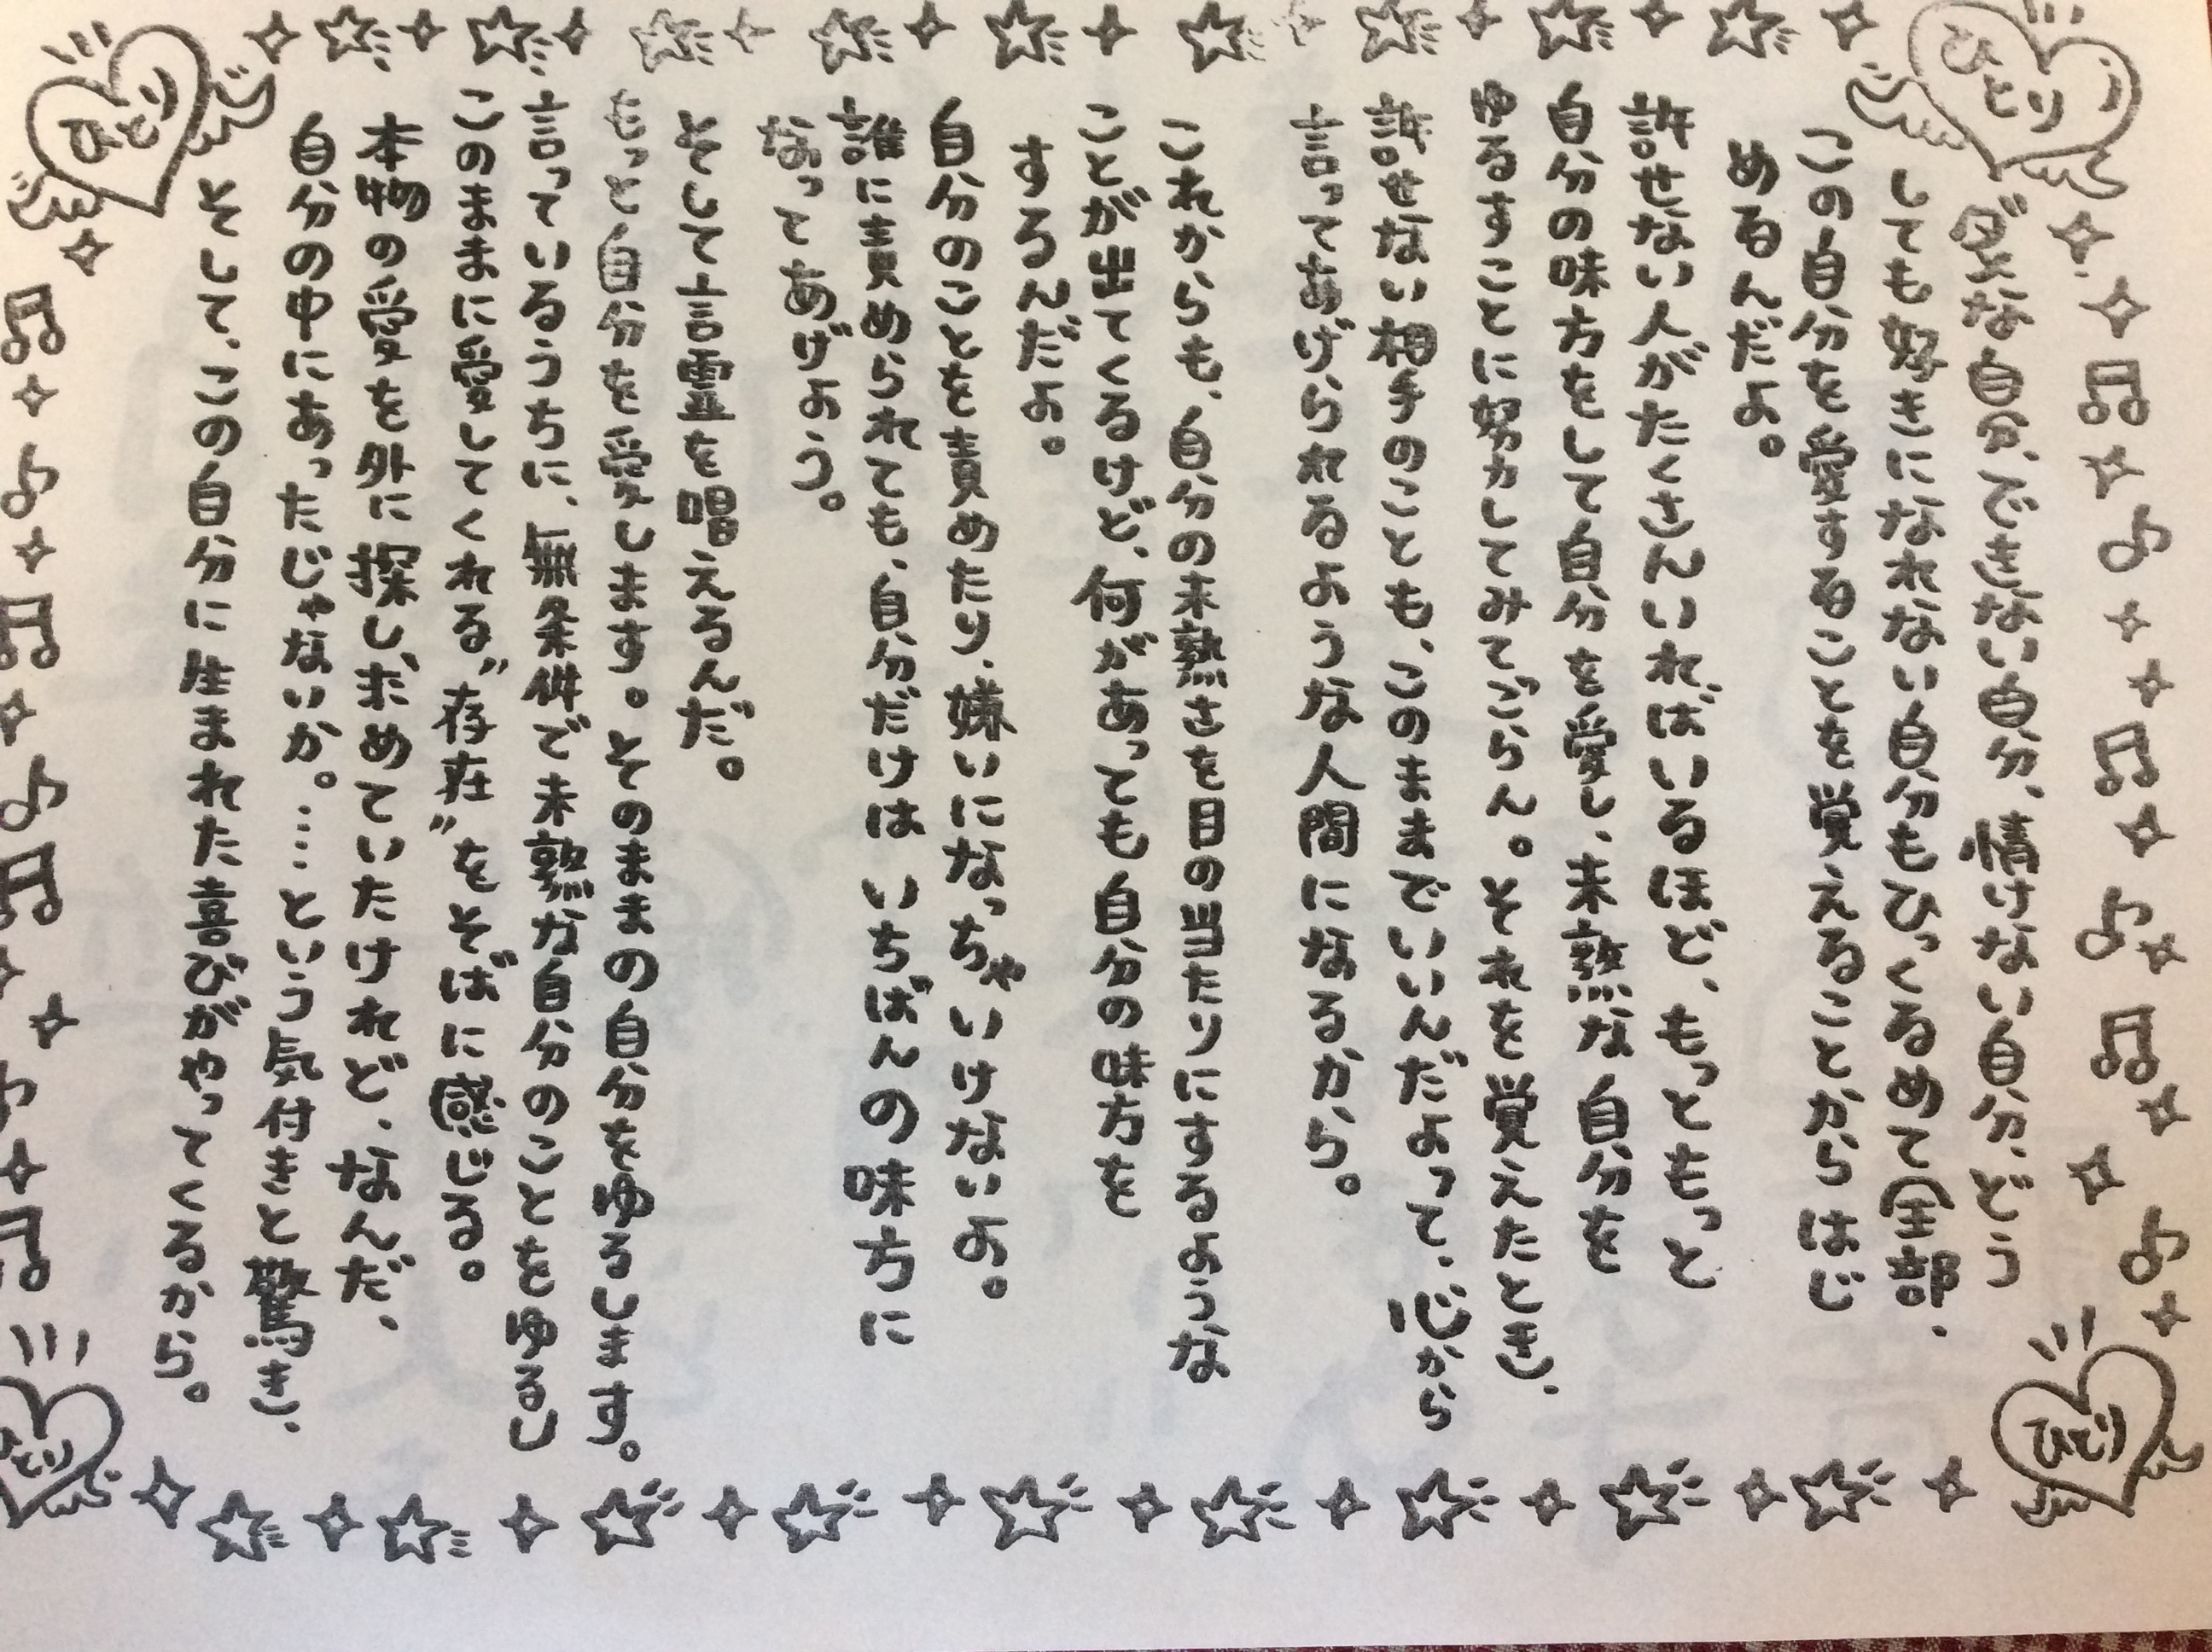 ひとり
ダメな自分、できない自分、情けない自分、どう
しても好きになれない自分もひっくるめて(全部)、
この自分を愛することを覚えることからはじ
めるんだよ。
許せない人がたくさんいればいるほど、もっともっと
自分の味方をして自分を愛し、未熟な自分を
ゆるすことに努力してみてごらん。それを覚えたとき、
許せない相手のことも、このままでいいんだよって、心から
言ってあげられるような人間になるから。
これからも、自分の未熟さを目の当たりにするような
ことが出てくるけど、何があっても自分の味方を
するんだよ。
自分のことを責めたり、嫌いになっちゃいけないよ。
誰に責められても、自分だけはいちばんの味方に
なってあげよう。
そして言霊を唱えるんだ。
もっと自分を愛します。そのままの自分をゆるします。
言っているうちに、無条件で未熟な自分のことをゆるし
このままに愛してくれる〝存在〟をそばに感じる。
本物の愛を外に探し、求めていたけれど、なんだ、
自分の中にあったじゃないか。……という気付きと驚き、
そして、この自分に生まれた喜びがやってくるから。
ひとり
ひとり
ひとり